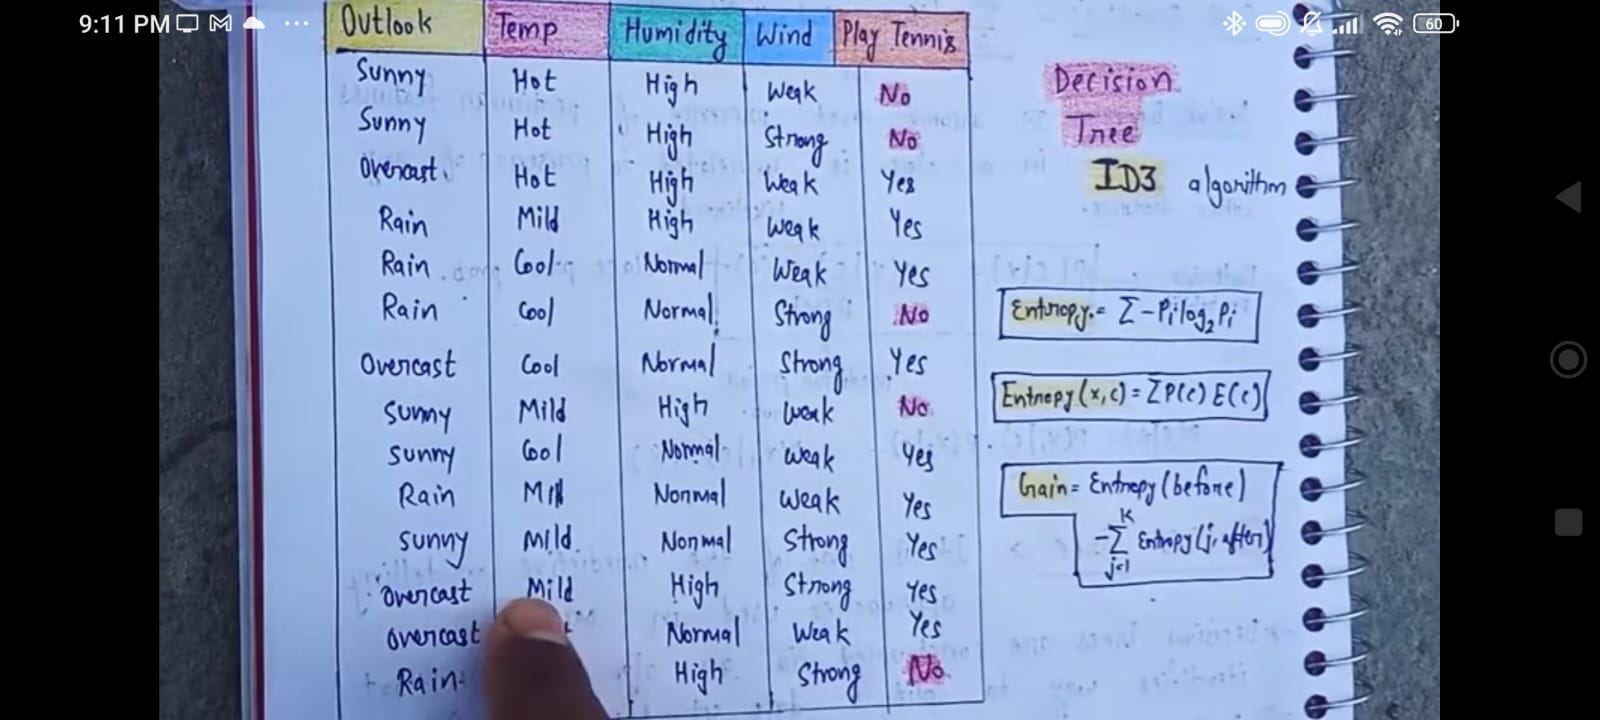 9:11 PM
60
Outlook Temp Humidity Wind Play Tennis
Sunny Hot High Weak No
Sunny Hot High Strong No
Overcast Hot High Weak Yes
Rain Mild High Weak Yes
Rain Cool Normal Weak Yes
Rain Cool Normal Strong No
Overcast Cool Normal Strong Yes
Sunny Mild High Weak No
Sunny Cool Normal Weak Yes
Rain Mild Normal Weak Yes
Sunny Mild Normal Strong Yes
Overcast Mild High Strong Yes
Overcast Normal Weak Yes
Rain High Strong No
Decision
Tree
ID3 algorithm
Entropy = Σ -Pi log₂ Pi
Entropy(x,c) = Σ P(c) E(c)
Gain = Entropy (before)
K
- Σ Entropy (j, after)
j=1